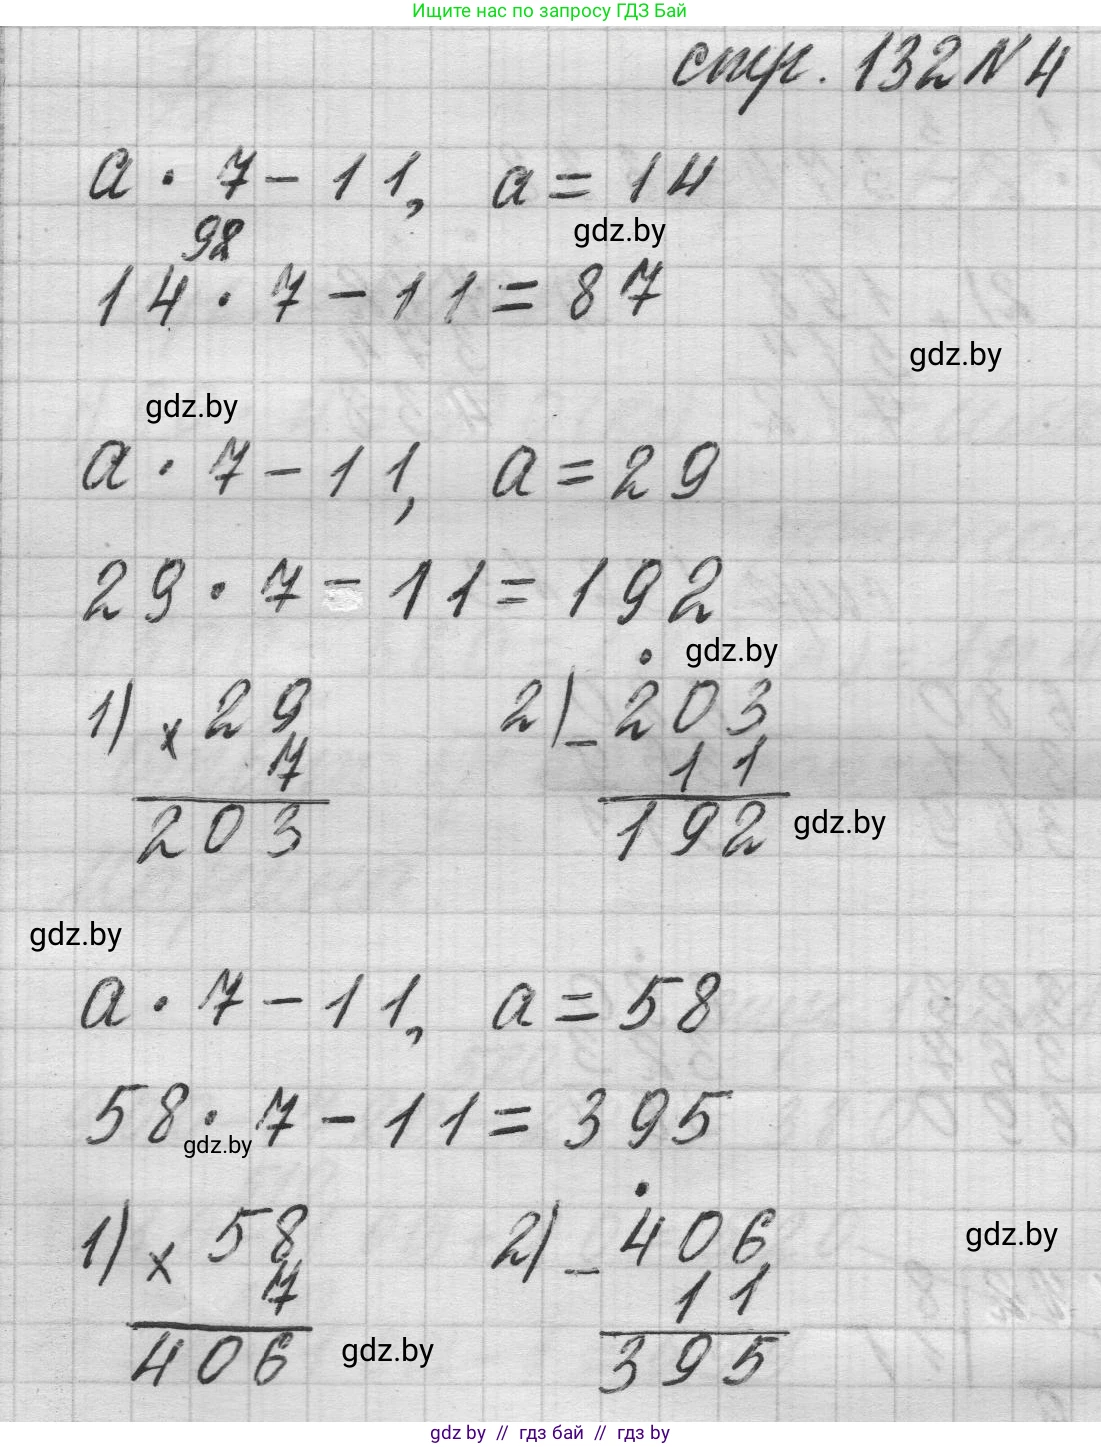 Ищите нас по запросу ГДЗ Бай
стр. 132 № 4
a · 7 - 11, a = 14
gdz.by
98
14 · 7 - 11 = 87
gdz.by
gdz.by
a · 7 - 11, a = 29
29 · 7 - 11 = 192
gdz.by
1) × 29 2) - 203
7 11
203 192 gdz.by
gdz.by
a · 7 - 11, a = 58
58 · 7 - 11 = 395
gdz.by
1) × 58 2) - 406 gdz.by
7 11
406 gdz.by 395
gdz by // гдз бай // gdz by